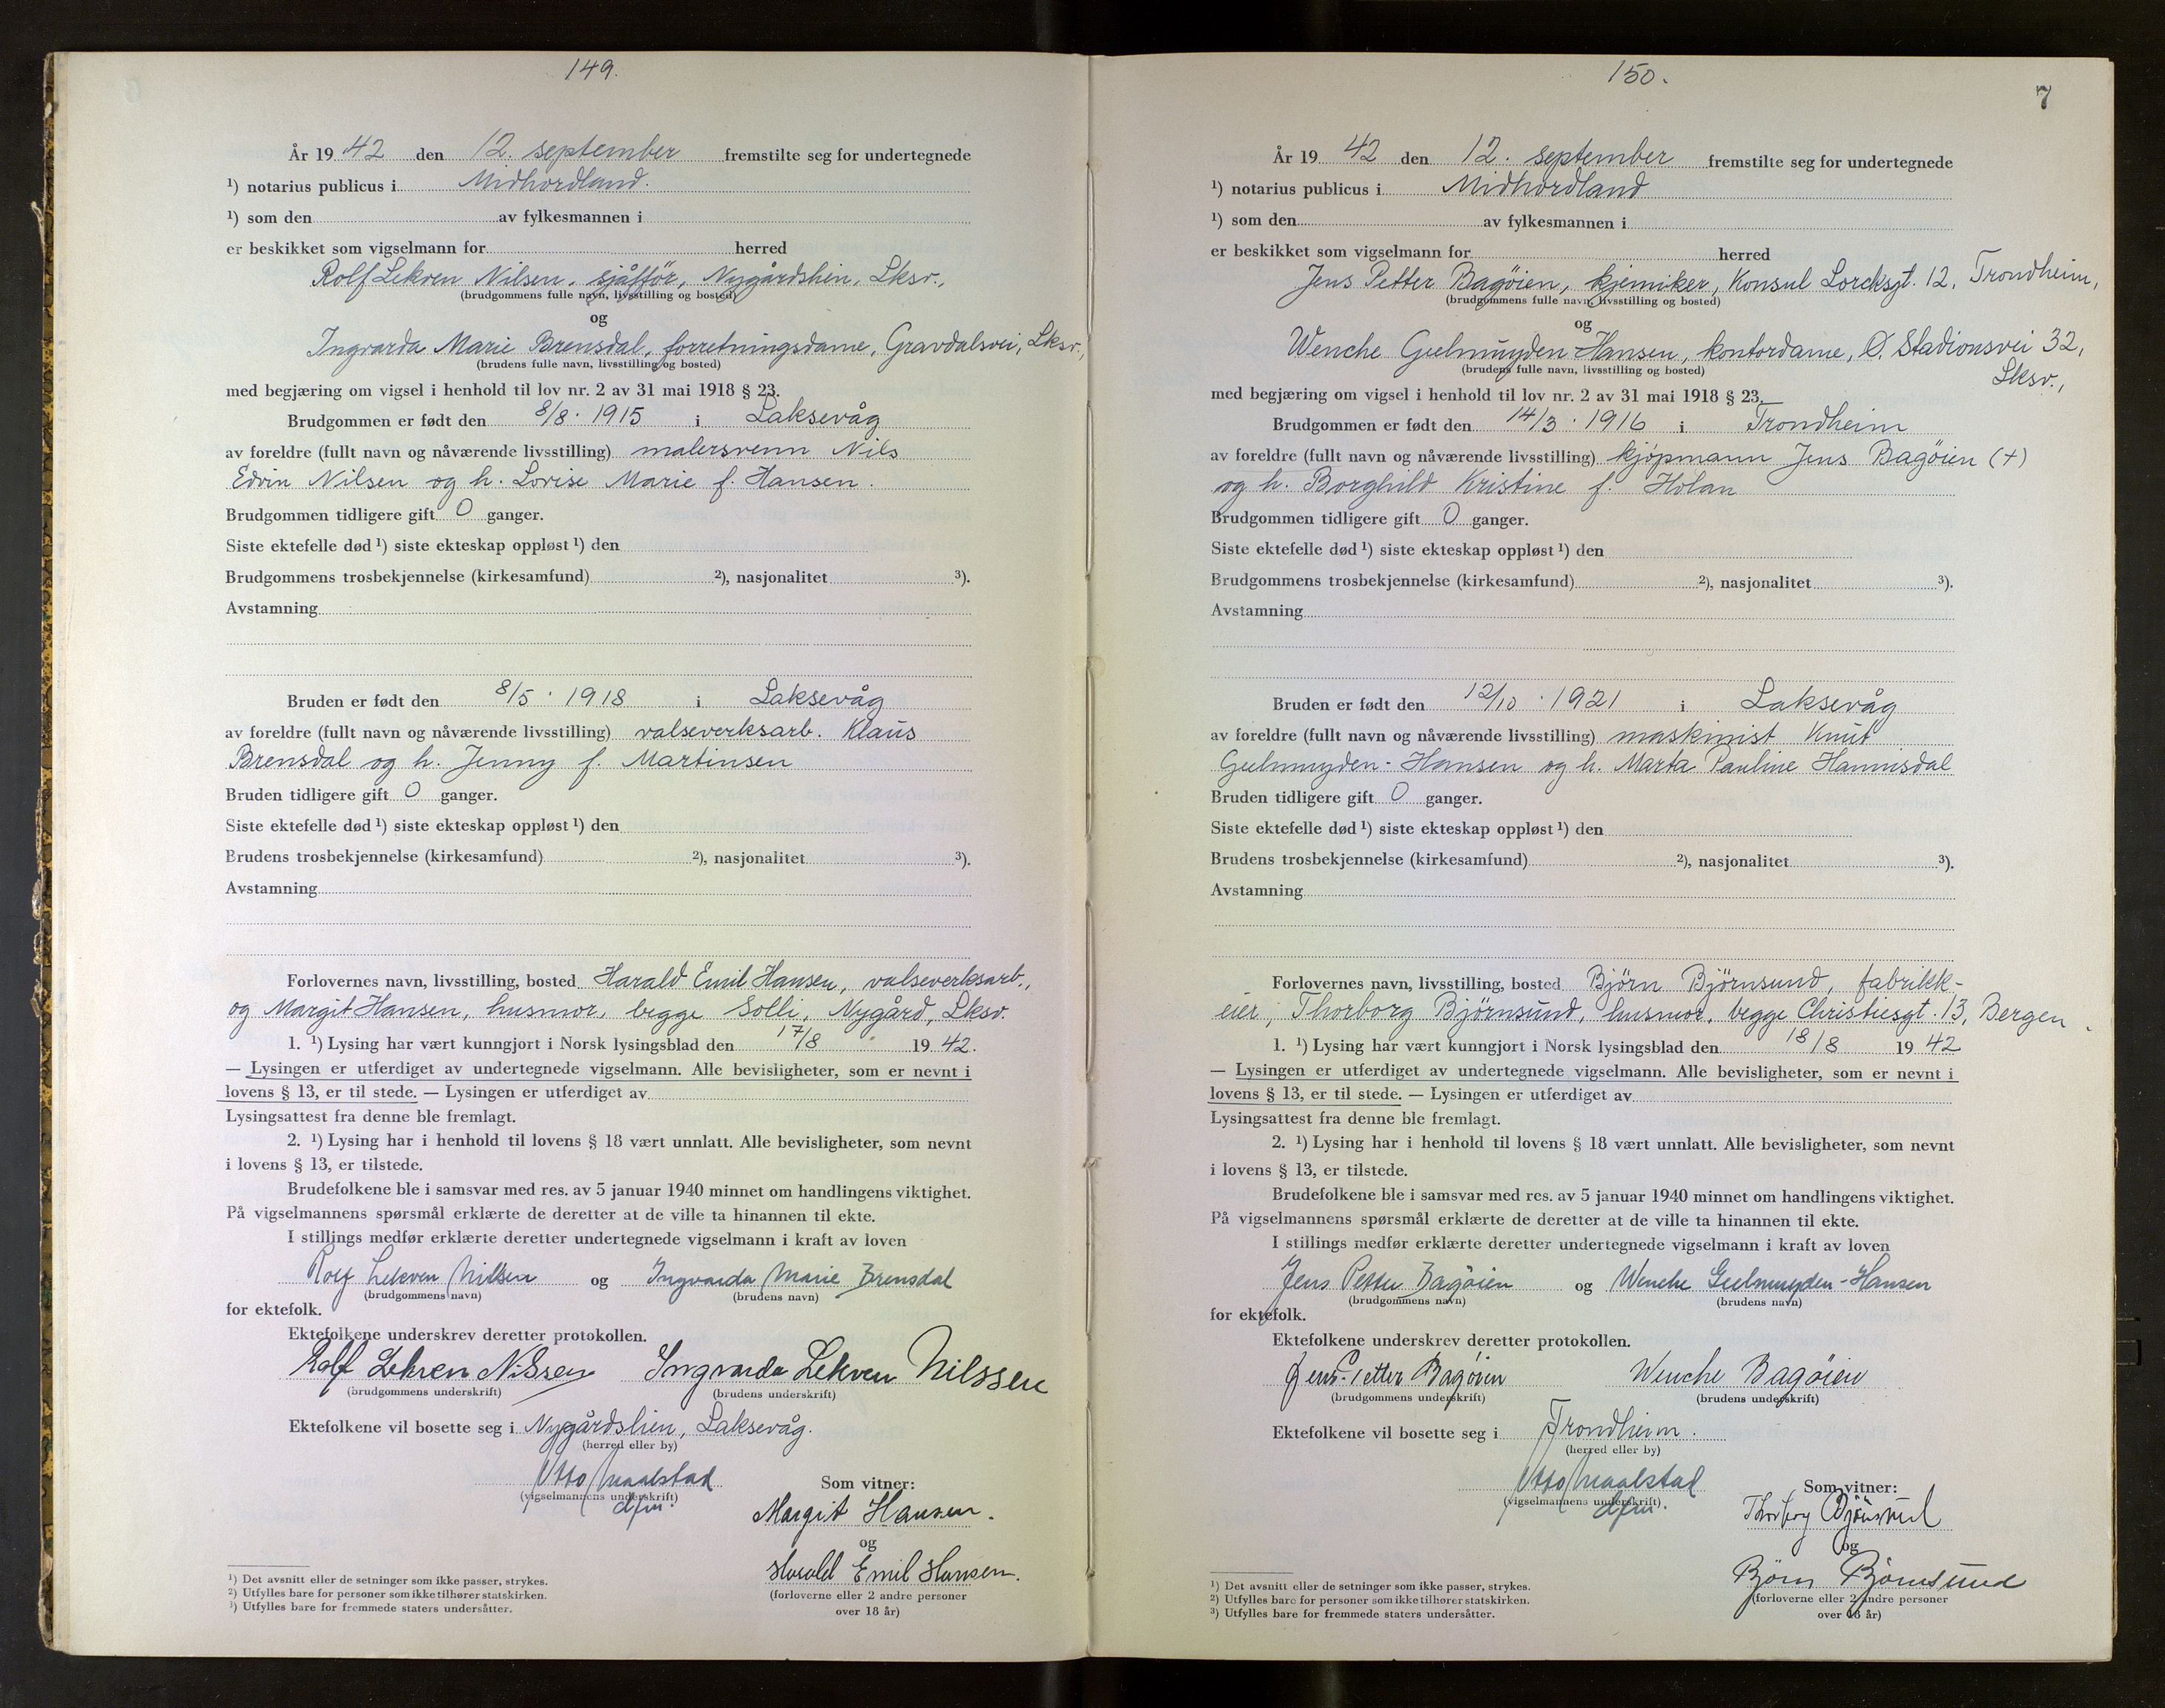 149.
År 19 42 den 12. september fremstilte seg for undertegnede
¹) notarius publicus i Midhordland.
¹) som den av fylkesmannen i
er beskikket som vigselmann for herred
Rolf Lekven Nilsen, sjåffør, Nygårdslien, Lksv.,
(brudgommens fulle navn, livsstilling og bosted)
og
Ingvarda Marie Brensdal, forretningsdame, Gravdalsvei, Lksv.,
(brudens fulle navn, livsstilling og bosted)
med begjæring om vigsel i henhold til lov nr. 2 av 31 mai 1918 § 23.
Brudgommen er født den 8/8. 1915 i Laksevåg
av foreldre (fullt navn og nåværende livsstilling) malersvenn Nils
Edvin Nilsen og h. Lovise Marie f. Hansen.
Brudgommen tidligere gift 0 ganger.
Siste ektefelle død ¹) siste ekteskap oppløst ¹) den
Brudgommens trosbekjennelse (kirkesamfund) ²), nasjonalitet ³).
Avstamning
Bruden er født den 8/5. 1918 i Laksevåg
av foreldre (fullt navn og nåværende livsstilling) valseverksarb. Klaus
Brensdal og h. Jenny f. Martinsen
Bruden tidligere gift 0 ganger.
Siste ektefelle død ¹) siste ekteskap oppløst ¹) den
Brudens trosbekjennelse (kirkesamfund) ²), nasjonalitet ³).
Avstamning
Forlovernes navn, livsstilling, bosted Harald Emil Hansen, valseverksarb.,
og Margit Hansen, husmor, begge Solli, Nygård, Lksv.
1. ¹) Lysing har vært kunngjort i Norsk lysingsblad den 17/8 19 42.
— Lysingen er utferdiget av undertegnede vigselmann. Alle bevisligheter, som er nevnt i
lovens § 13, er til stede. — Lysingen er utferdiget av
Lysingsattest fra denne ble fremlagt.
2. ¹) Lysing har i henhold til lovens § 18 vært unnlatt. Alle bevisligheter, som nevnt
i lovens § 13, er tilstede.
Brudefolkene ble i samsvar med res. av 5 januar 1940 minnet om handlingens viktighet.
På vigselmannens spørsmål erklærte de deretter at de ville ta hinannen til ekte.
I stillings medfør erklærte deretter undertegnede vigselmann i kraft av loven
Rolf Lekven Nilsen og Ingvarda Marie Brensdal
(brudgommens navn) (brudens navn)
for ektefolk.
Ektefolkene underskrev deretter protokollen.
Rolf Lekven Nilssen Ingvarda Lekven Nilssen
(brudgommens underskrift) (brudens underskrift)
Ektefolkene vil bosette seg i Nygårdslien, Laksevåg.
(herred eller by)
Otto Maalstad
(vigselmannens underskrift)
dfm.
Som vitner:
Margit Hansen.
og
Harald Emil Hansen.
(forloverne eller 2 andre personer
over 18 år)
¹) Det avsnitt eller de setninger som ikke passer, strykes.
²) Utfylles bare for personer som ikke tilhører statskirken.
³) Utfylles bare for fremmede staters undersåtter.
150.
7
År 19 42 den 12. september fremstilte seg for undertegnede
¹) notarius publicus i Midhordland
¹) som den av fylkesmannen i
er beskikket som vigselmann for herred
Jens Petter Bagöien, kjemiker, Konsul Lorcksgt. 12, Trondheim,
(brudgommens fulle navn, livsstilling og bosted)
og
Wenche Gulmuyden-Hansen, kontordame, Ø. Stadionsvei 32,
(brudens fulle navn, livsstilling og bosted)
Lksv.,
med begjæring om vigsel i henhold til lov nr. 2 av 31 mai 1918 § 23.
Brudgommen er født den 14/3. 1916 i Trondheim
av foreldre (fullt navn og nåværende livsstilling) kjøpmann Jens Bagöien (+)
og h. Borghild Kristine f. Holan
Brudgommen tidligere gift 0 ganger.
Siste ektefelle død ¹) siste ekteskap oppløst ¹) den
Brudgommens trosbekjennelse (kirkesamfund) ²), nasjonalitet ³).
Avstamning
Bruden er født den 12/10. 1921 i Laksevåg
av foreldre (fullt navn og nåværende livsstilling) maskinist Knut
Gulmuyden-Hansen og h. Marta Pauline Hannisdal
Bruden tidligere gift 0 ganger.
Siste ektefelle død ¹) siste ekteskap oppløst ¹) den
Brudens trosbekjennelse (kirkesamfund) ²), nasjonalitet ³).
Avstamning
Forlovernes navn, livsstilling, bosted Björn Björnsund, fabrikk-
eier, Thorborg Björnsund, husmor, begge Christiesgt. 13, Bergen.
1. ¹) Lysing har vært kunngjort i Norsk lysingsblad den 18/8 19 42
— Lysingen er utferdiget av undertegnede vigselmann. Alle bevisligheter, som er nevnt i
lovens § 13, er til stede. — Lysingen er utferdiget av
Lysingsattest fra denne ble fremlagt.
2. ¹) Lysing har i henhold til lovens § 18 vært unnlatt. Alle bevisligheter, som nevnt
i lovens § 13, er tilstede.
Brudefolkene ble i samsvar med res. av 5 januar 1940 minnet om handlingens viktighet.
På vigselmannens spørsmål erklærte de deretter at de ville ta hinannen til ekte.
I stillings medfør erklærte deretter undertegnede vigselmann i kraft av loven
Jens Petter Bagöien og Wenche Gulmuyden-Hansen
(brudgommens navn) (brudens navn)
for ektefolk.
Ektefolkene underskrev deretter protokollen.
Jens Petter Bagöien Wenche Bagöien
(brudgommens underskrift) (brudens underskrift)
Ektefolkene vil bosette seg i Trondheim.
(herred eller by)
Otto Maalstad
(vigselmannens underskrift)
dfm.
Som vitner:
Thorborg Björnsund
og
Björn Björnsund
(forloverne eller 2 andre personer
over 18 år)
¹) Det avsnitt eller de setninger som ikke passer, strykes.
²) Utfylles bare for personer som ikke tilhører statskirken.
³) Utfylles bare for fremmede staters undersåtter.